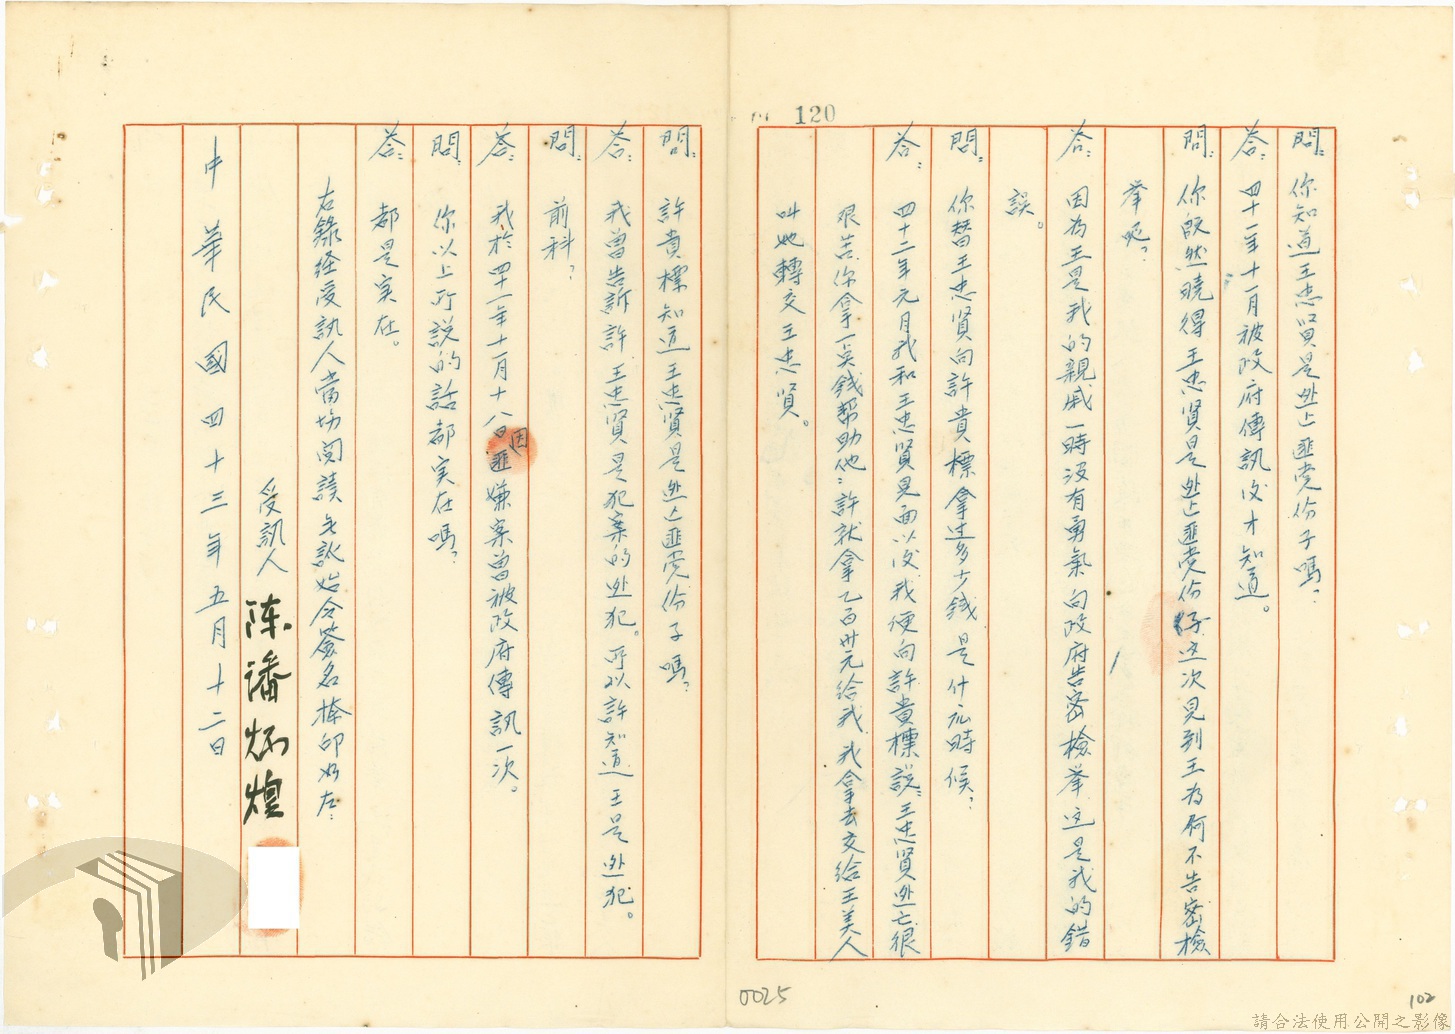 120
問：你知道王忠賢是逃亡匪党份子嗎？
答：四十一年十一月被政府傳訊後才知道。
問：你既然曉得王忠賢是逃亡匪党份子这次見到王為何不告密檢
舉呢？
答：因為王是我的親戚一時沒有勇氣向政府告密檢舉这是我的錯
誤。
問：你替王忠賢向許貴標拿过多少錢是什么時候？
答：四十二年元月我和王忠賢見面以後我便向許貴標說：王忠賢逃亡很
艰苦你拿一点錢帮助他：許就拿乙百卅元給我我拿去交給王美人
叫她轉交王忠賢。
問：許貴標知道王忠賢是逃亡匪党份子嗎？
答：我曾告訴許王忠賢是犯案的逃犯。所以許知道王是逃犯。
問：前科？
答：我於四十一年十一月十八日因匪嫌案曾被政府傳訊一次。
問：你以上所説的話都实在嗎？
答：都是实在。
右錄経受訊人當场閲讀無訛始令簽名捺印如左：
受訊人 陈潘炳煌
中華民國四十三年五月十二日
0025
102
請合法使用公開之影像